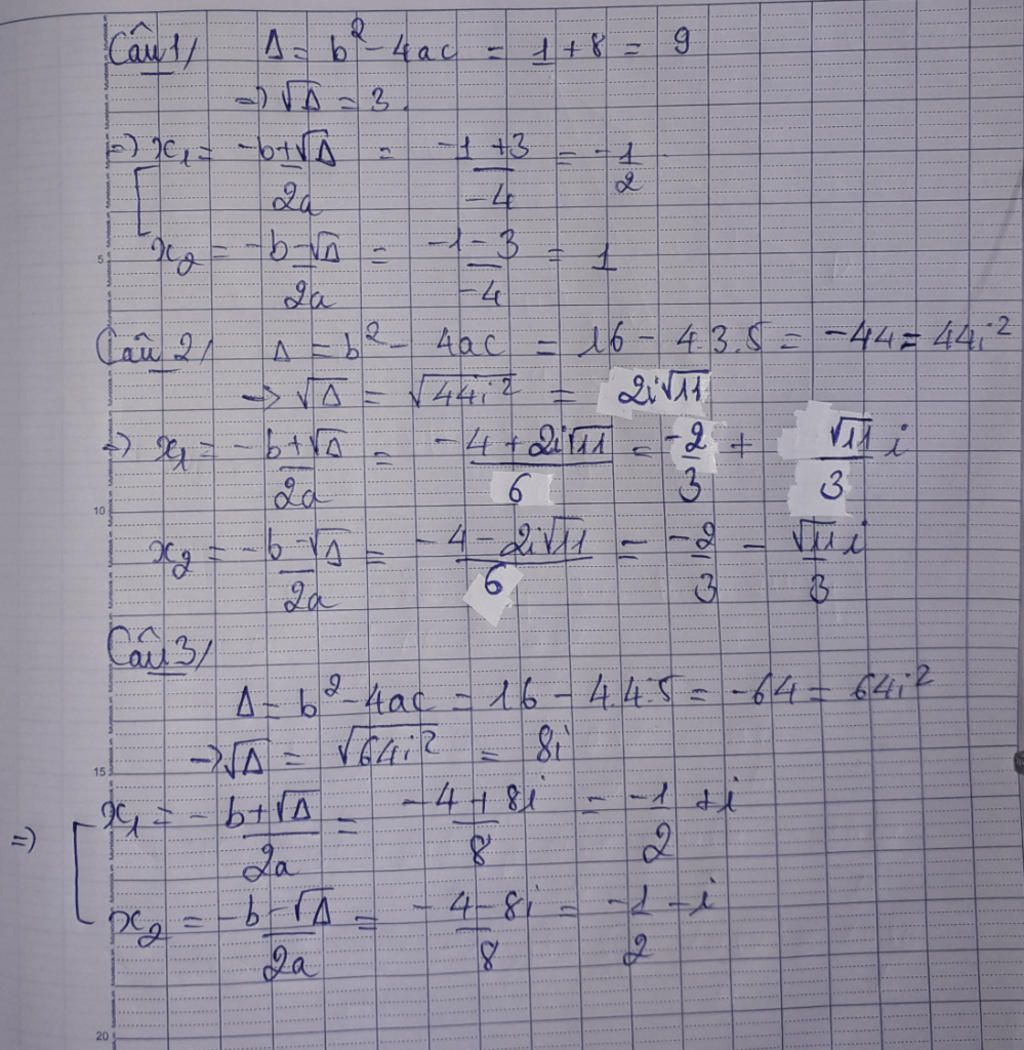 Câu 1/ Δ = b² - 4ac = 1 + 8 = 9
=> √Δ = 3.
=> x₁ = -b+√Δ / 2a = -1+3 / -4 = -1/2
x₂ = -b-√Δ / 2a = -1-3 / -4 = 1
5
Câu 2/ Δ = b² - 4ac = 16 - 4.3.5 = -44 = 44i²
-> √Δ = √44i² = 2i√11
=> x₁ = -b+√Δ / 2a = -4+2i√11 / 6 = -2/3 + √11/3 i
10
x₂ = -b-√Δ / 2a = -4-2i√11 / 6 = -2/3 - √11 i/3
Câu 3/
Δ = b² - 4ac = 16 - 4.4.5 = -64 = 64i²
-> √Δ = √64i² = 8i
15
=> x₁ = -b+√Δ / 2a = -4+8i / 8 = -1/2 + i
x₂ = -b-√Δ / 2a = -4-8i / 8 = -1/2 - i
20